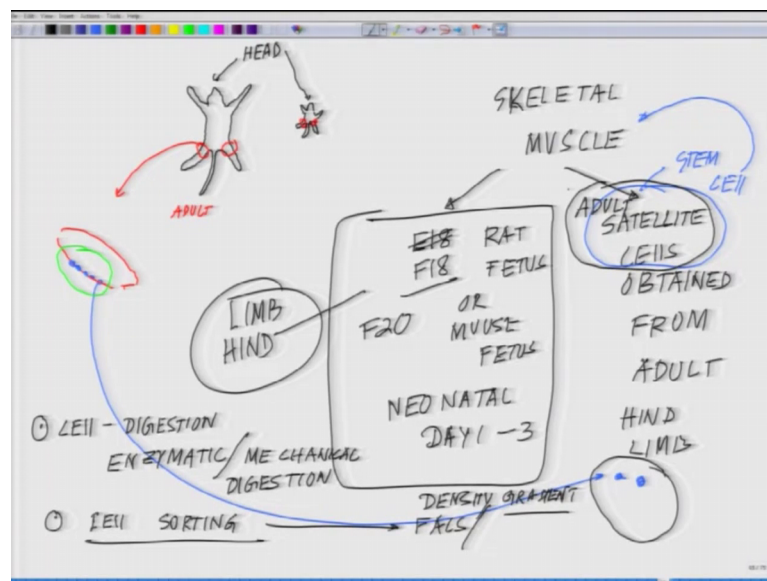 HEAD
ADULT
SKELETAL
MUSCLE
STEM
CELL
ADULT
SATELLITE
CELLS
OBTAINED
FROM
ADULT
HIND
LIMBS
E18 RAT
F18 FETUS
F20 OR
MOUSE
FETUS
NEONATAL
DAY 1-3
LIMB
HIND
① CELL-DIGESTION
ENZYMATIC/MECHANICAL
DIGESTION
① CELL SORTING
DENSITY GRADIENT
FACS/